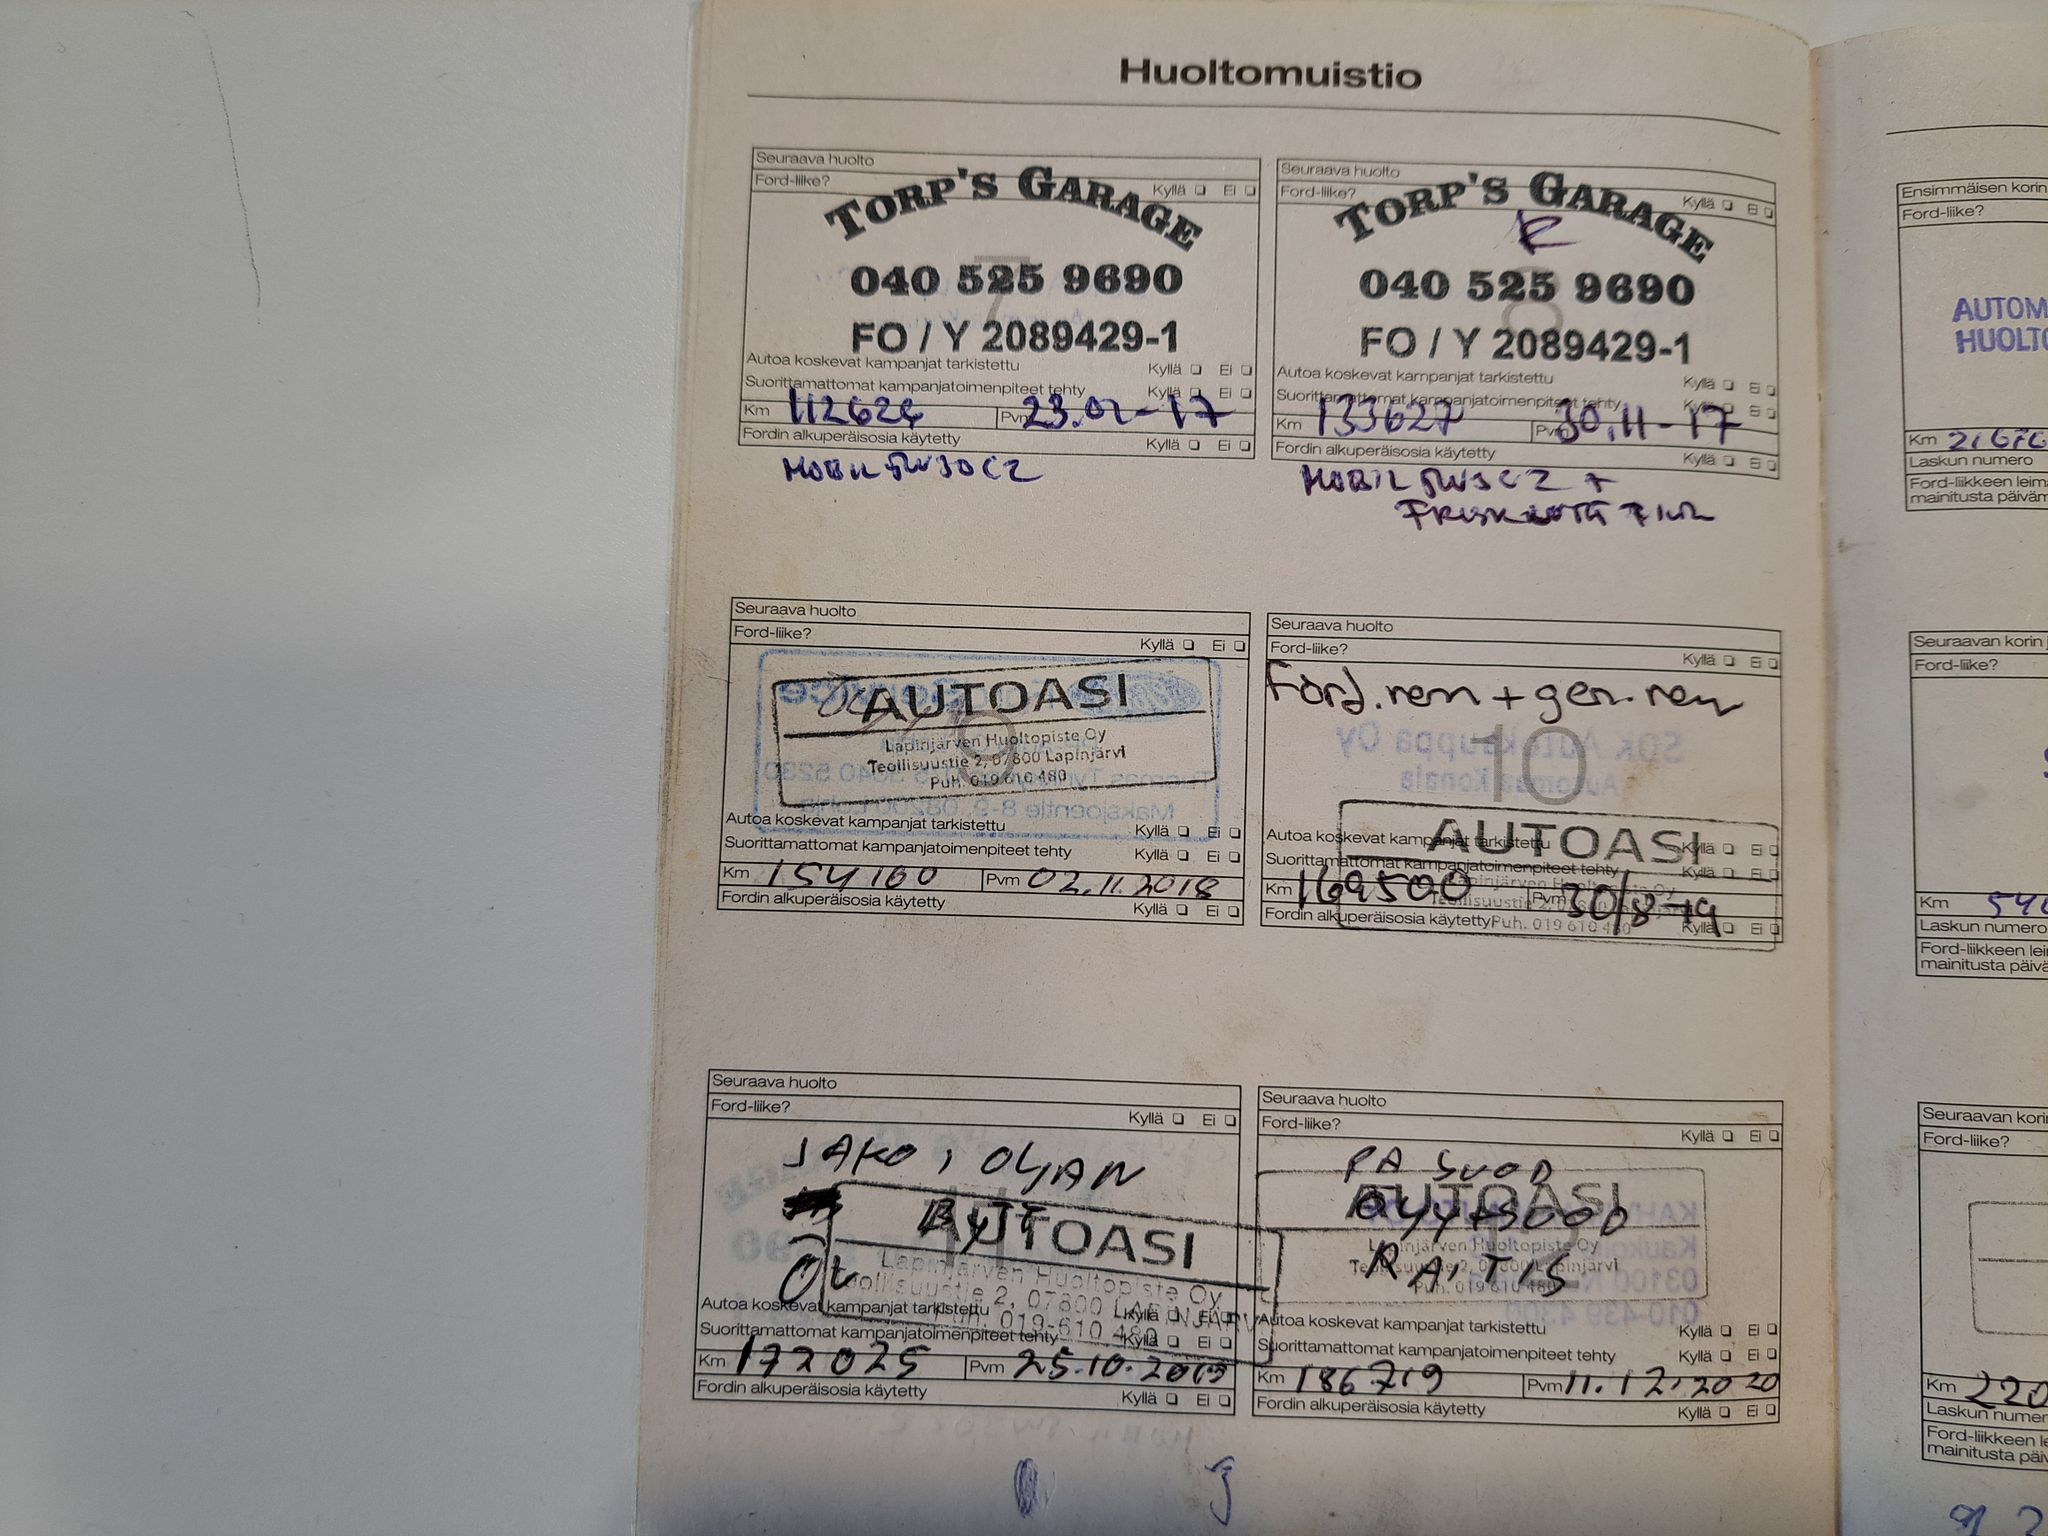 Huoltomuistio
Seuraava huolto
Ford-liike? Kyllä Ei
TORP'S GARAGE
7
040 525 9690
FO / Y 2089429-1
Autoa koskevat kampanjat tarkistettu Kyllä Ei
Suorittamattomat kampanjatoimenpiteet tehty Kyllä Ei
Km 112624 Pvm 23.02-17
Fordin alkuperäisosia käytetty Kyllä Ei
MOBIL 5W30 C2
Seuraava huolto
Ford-liike? Kyllä Ei
TORP'S GARAGE
8
040 525 9690
FO / Y 2089429-1
Autoa koskevat kampanjat tarkistettu Kyllä Ei
Suorittamattomat kampanjatoimenpiteet tehty Kyllä Ei
Km 133627 Pvm 30.11-17
Fordin alkuperäisosia käytetty Kyllä Ei
MOBIL 5W30 C2 +
Seuraava huolto
Ford-liike? Kyllä Ei
AUTOASI
9
Lapinjärven Huoltopiste Oy
Teollisuustie 2, 07800 Lapinjärvi
Puh. 019 610 480
Autoa koskevat kampanjat tarkistettu Kyllä Ei
Suorittamattomat kampanjatoimenpiteet tehty Kyllä Ei
Km 154160 Pvm 02.11.2018
Fordin alkuperäisosia käytetty Kyllä Ei
Seuraava huolto
Ford-liike? Kyllä Ei
Ford.rem + gen.rem
10
AUTOASI
Autoa koskevat kampanjat tarkistettu Kyllä Ei
Suorittamattomat kampanjatoimenpiteet tehty
Km 169500 Pvm 30/8-19
Fordin alkuperäisosia käytetty Puh. 019 610 480 Kyllä Ei
Seuraava huolto
Ford-liike? Kyllä Ei
JAKO, OLJAN
BYTT
11
AUTOASI
Lapinjärven Huoltopiste Oy
Teollisuustie 2, 07800 LAPINJÄRVI
Puh. 019-610 480
Autoa koskevat kampanjat tarkistettu Kyllä Ei
Suorittamattomat kampanjatoimenpiteet tehty Kyllä Ei
Km 172025 Pvm 25.10.2019
Fordin alkuperäisosia käytetty Kyllä Ei
Seuraava huolto
Ford-liike? Kyllä Ei
PA SUOD
AUTOASI
ÖLJY+SUOD
12
Lapinjärven Huoltopiste Oy
Teollisuustie 2, 07800 Lapinjärvi
RAITIS
Puh. 019 610 480
Autoa koskevat kampanjat tarkistettu Kyllä Ei
Suorittamattomat kampanjatoimenpiteet tehty Kyllä Ei
Km 186719 Pvm 11.12.2020
Fordin alkuperäisosia käytetty Kyllä Ei
Ensimmäisen korin
Ford-liike?
AUTOM
HUOLTO
Km
Laskun numero
Ford-liikkeen leima
mainitusta päiväm
Seuraavan korin
Ford-liike?
Km 540
Laskun numero
Ford-liikkeen leim
mainitusta päivä
Seuraavan kori
Ford-liike?
Km 220
Laskun numer
Ford-liikkeen le
mainitusta päi